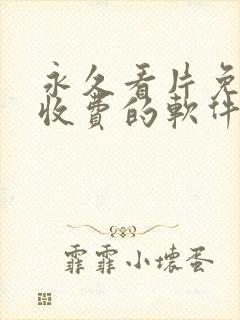 永久看片免
收费的軟件
霏霏小壞蛋